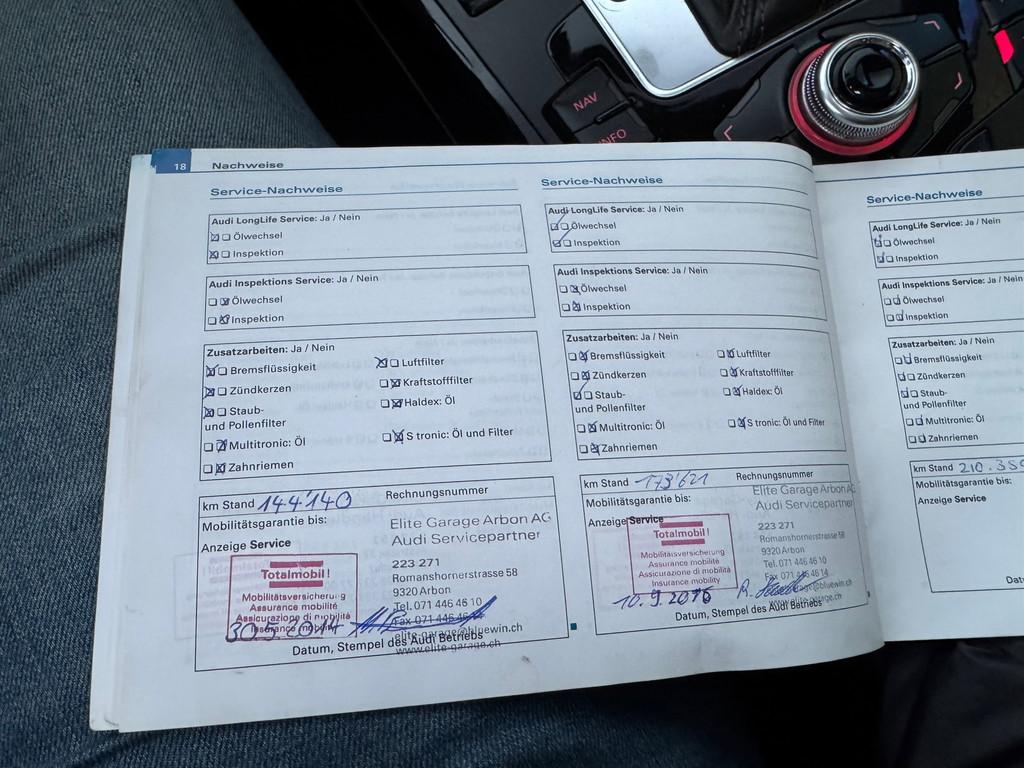 NAV
INFO
18 Nachweise
Service-Nachweise
Audi LongLife Service: Ja / Nein
Ölwechsel
Inspektion
Audi Inspektions Service: Ja / Nein
Ölwechsel
Inspektion
Zusatzarbeiten: Ja / Nein
Bremsflüssigkeit
Luftfilter
Zündkerzen
Kraftstofffilter
Staub-
und Pollenfilter
Haldex: Öl
Multitronic: Öl
S tronic: Öl und Filter
Zahnriemen
km Stand 144'140
Rechnungsnummer
Mobilitätsgarantie bis:
Anzeige Service
Elite Garage Arbon AG
Audi Servicepartner
223 271
Romanshornerstrasse 58
9320 Arbon
Tel. 071 446 46 10
Fax 071 446 46 14
elite-garage@bluewin.ch
www.elite-garage.ch
Totalmobil!
Mobilitätsversicherung
Assurance mobilité
Assicurazione di mobilità
Insurance mobility
30.5.2014
Datum, Stempel des Audi Betriebs
Service-Nachweise
Audi LongLife Service: Ja / Nein
Ölwechsel
Inspektion
Audi Inspektions Service: Ja / Nein
Ölwechsel
Inspektion
Zusatzarbeiten: Ja / Nein
Bremsflüssigkeit
Luftfilter
Zündkerzen
Kraftstofffilter
Staub-
und Pollenfilter
Haldex: Öl
Multitronic: Öl
S tronic: Öl und Filter
Zahnriemen
km Stand 173'621
Rechnungsnummer
Mobilitätsgarantie bis:
Anzeige Service
Elite Garage Arbon AG
Audi Servicepartner
223 271
Romanshornerstrasse 58
9320 Arbon
Tel. 071 446 46 10
Fax 071 446 46 14
elite-garage@bluewin.ch
www.elite-garage.ch
Totalmobil!
Mobilitätsversicherung
Assurance mobilité
Assicurazione di mobilità
Insurance mobility
10.9.2016
Datum, Stempel des Audi Betriebs
Service-Nachweise
Audi LongLife Service: Ja / Nein
Ölwechsel
Inspektion
Audi Inspektions Service: Ja / Nein
Ölwechsel
Inspektion
Zusatzarbeiten: Ja / Nein
Bremsflüssigkeit
Zündkerzen
Staub-
und Pollenfilter
Multitronic: Öl
Zahnriemen
km Stand 210.38
Mobilitätsgarantie bis:
Anzeige Service